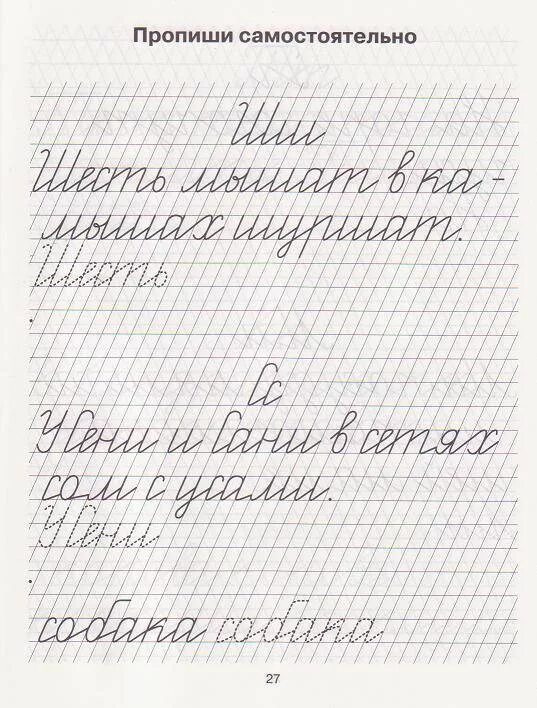 Пропиши самостоятельно
Шш
Шесть мышат в ка-
мышах шуршат.
Шесть
Сс
У Сени и Сани в сетях
сом с усами.
У Сени
собака собака
27